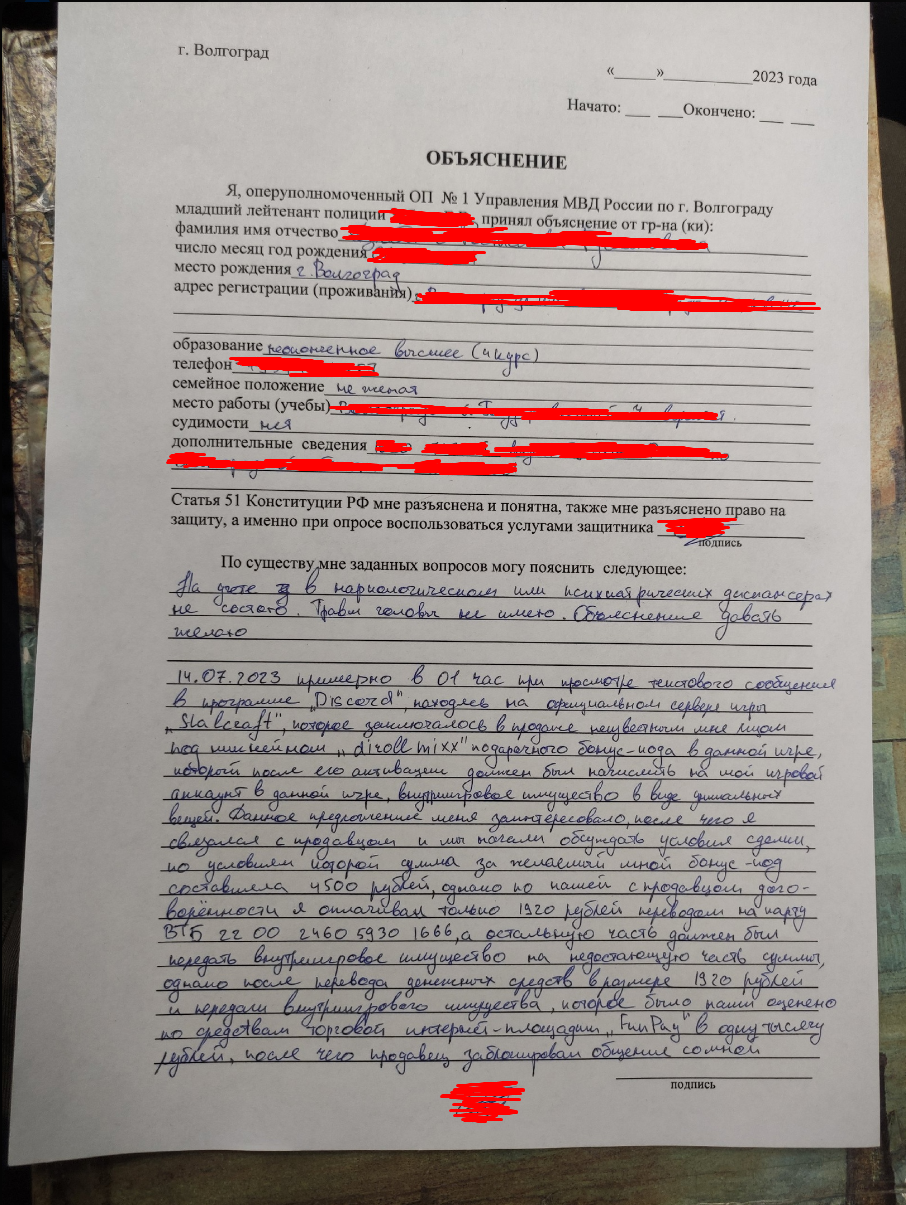 г. Волгоград
«_____»____________2023 года
Начато: ___ ___Окончено: ___ ___
ОБЪЯСНЕНИЕ
Я, оперуполномоченный ОП № 1 Управления МВД России по г. Волгограду
младший лейтенант полиции принял объяснение от гр-на (ки):
фамилия имя отчество
число месяц год рождения
место рождения г. Волгоград
адрес регистрации (проживания)
образование неоконченное высшее (4 курс)
телефон
семейное положение не женат
место работы (учебы)
судимости нет
дополнительные сведения
Статья 51 Конституции РФ мне разъяснена и понятна, также мне разъяснено право на
защиту, а именно при опросе воспользоваться услугами защитника
подпись
По существу мне заданных вопросов могу пояснить следующее:
На учете в наркологическом или психиатрических диспансерах
не состою. Травм головы не имею. Объяснение давать
желаю
14.07.2023 примерно в 01 час при просмотре текстового сообщения
в программе „Discord", находясь на официальном сервере игры
„Stalcraft", которое заключалось в продаже неизвестным мне лицом
под никнеймом „dirollmixx" подарочного бонус-кода в данной игре,
который после его активации должен был начислить на мой игровой
аккаунт в данной игре, внутриигровое имущество в виде уникальных
вещей. Данное предложение меня заинтересовало, после чего я
связался с продавцом и мы начали обсуждать условия сделки,
по условиям которой сумма за желаемый мной бонус-код
составила 4500 рублей, однако по нашей с продавцом дого-
ворённости я оплачивал только 1920 рублей переводом на карту
ВТБ 22 00 2460 5930 1666, а остальную часть должен был
передать внутриигровое имущество на недостающую часть суммы,
однако после перевода денежных средств в размере 1920 рублей
и передачи внутриигрового имущества, которое было нами оценено
по средствам торговой интернет-площадки „FunPay" в одну тысячу
рублей, после чего продавец заблокировал общение со мной
подпись